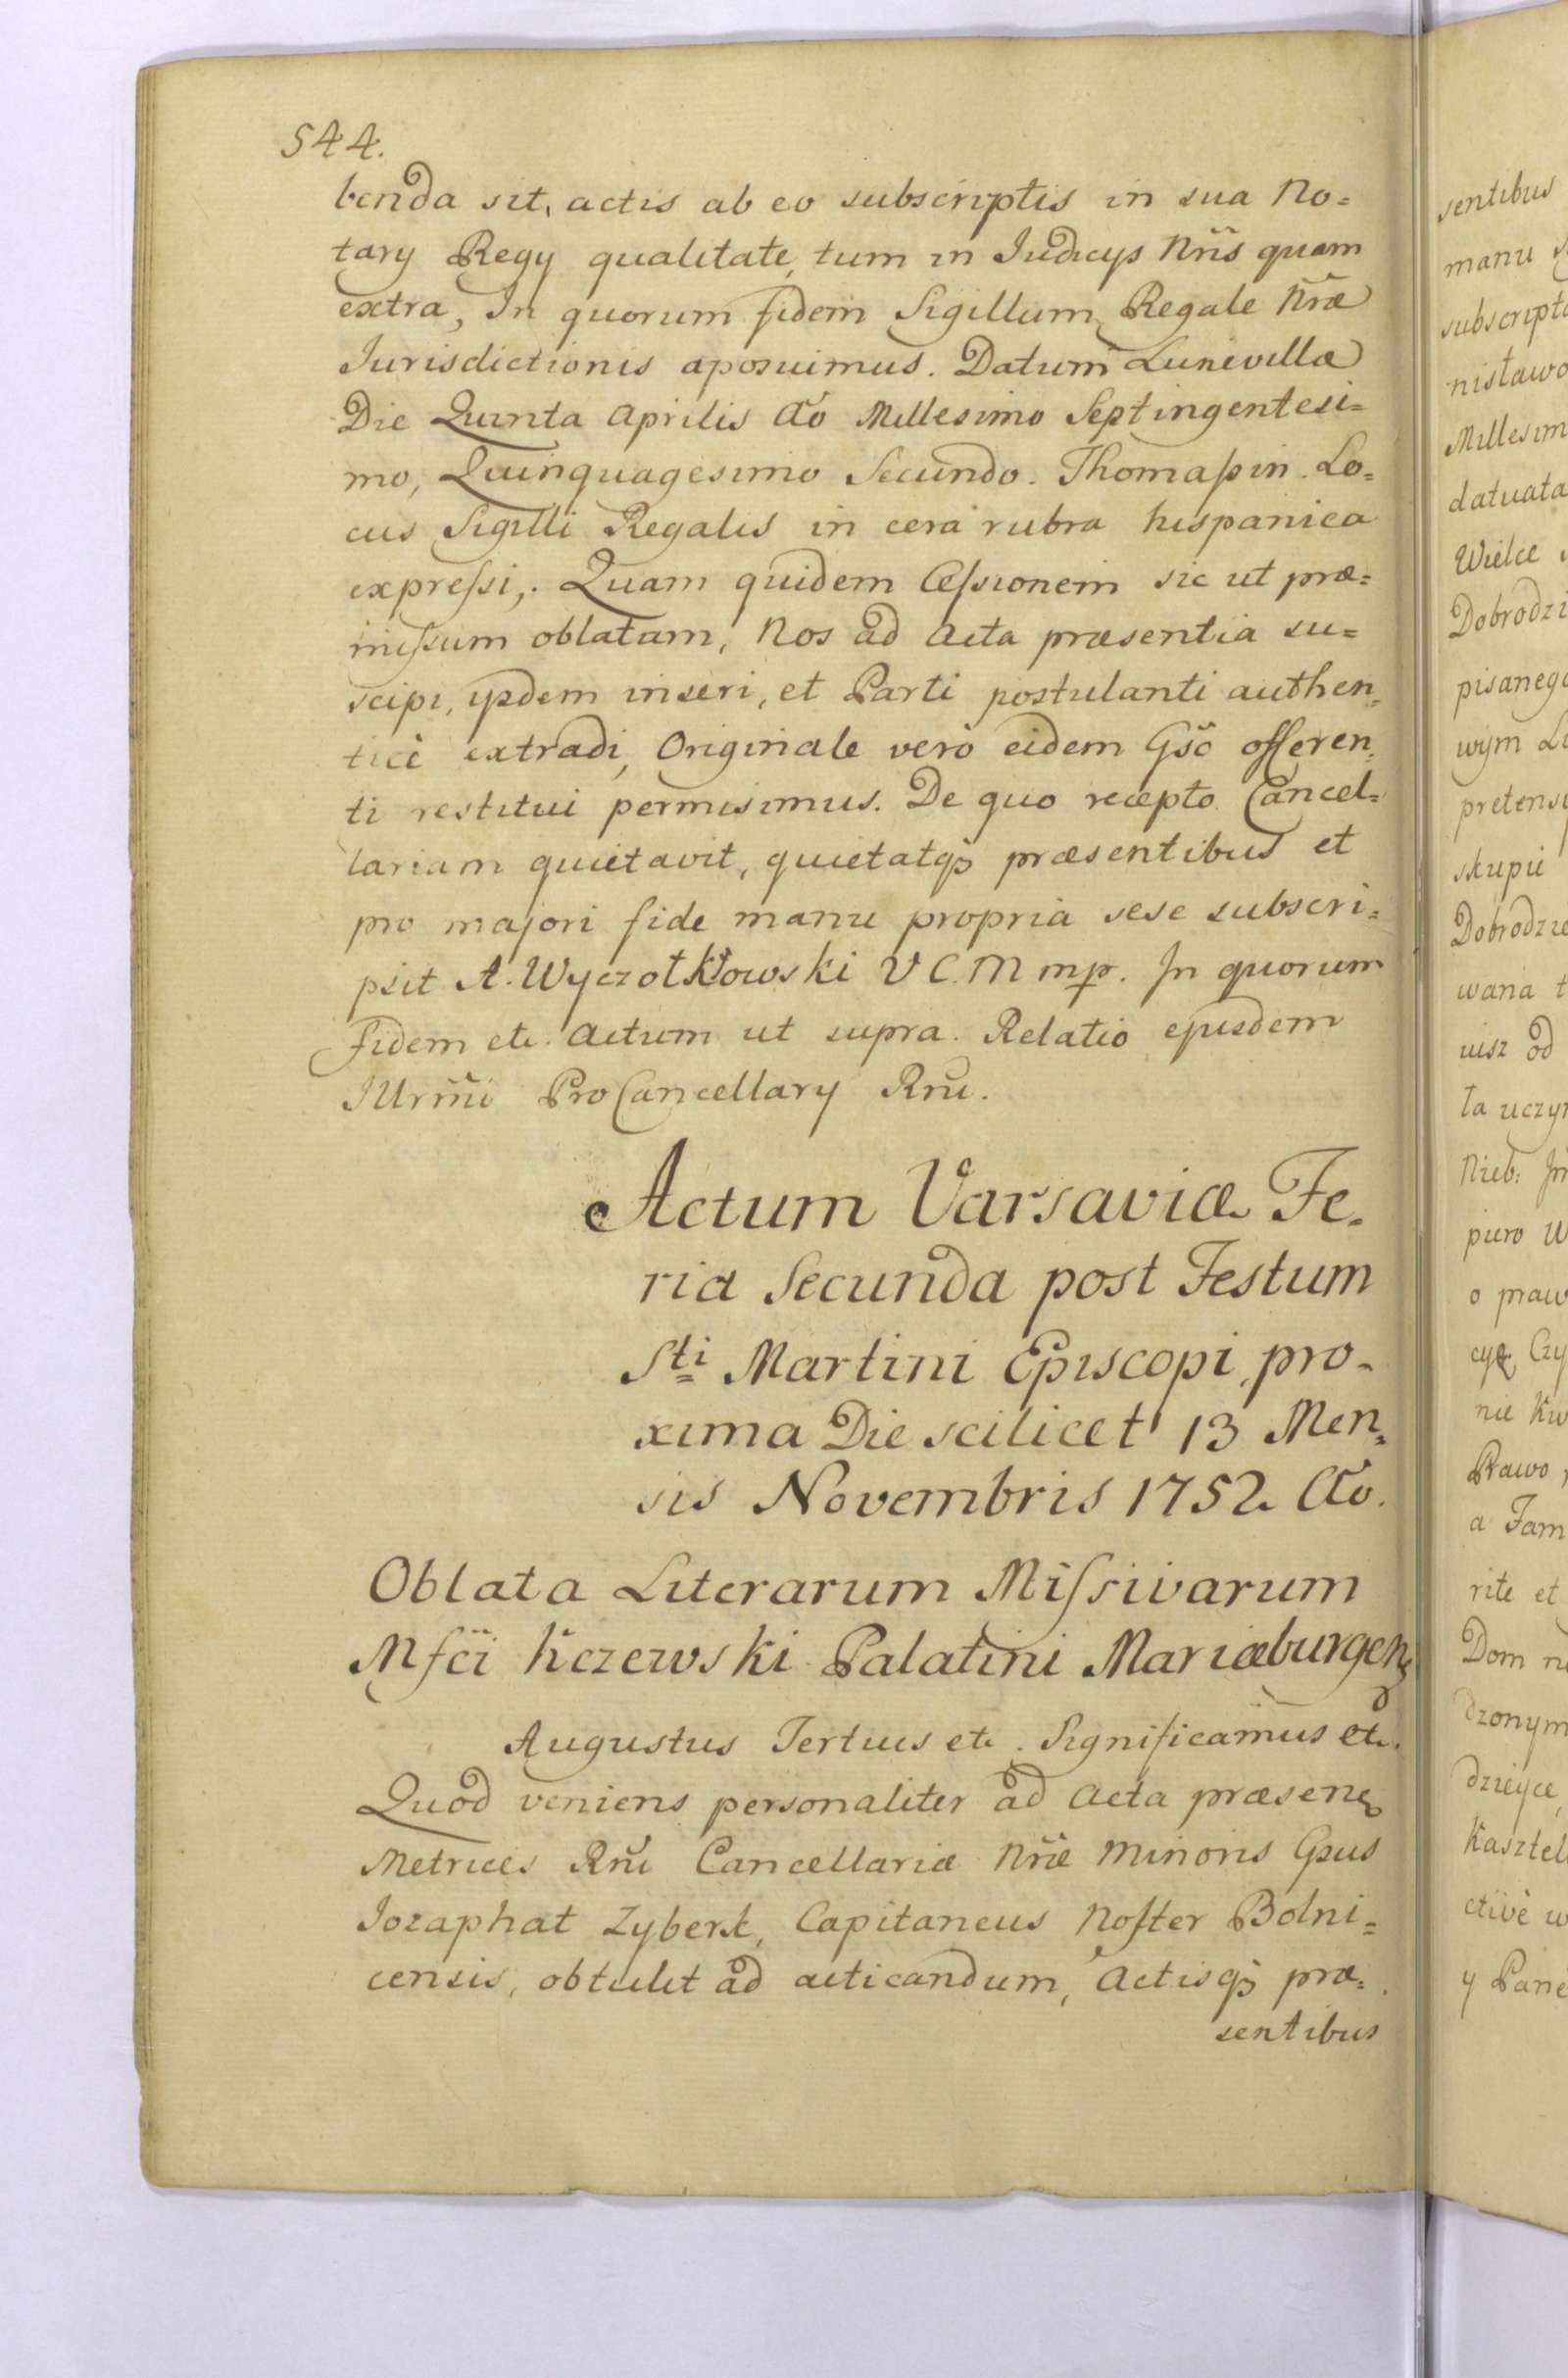 544.
benda sit, actis ab eo subscriptis in sua No=
tary Regy qualitate, tum in Judicys Nris quam
extra, In quorum fidem Sigillum Regale Nræ
Jurisdictionis aposuimus. Datum Lunevillæ
Die Quinta Aprilis Ao Millesimo Septingentesi=
mo, Quinquagesimo Secundo. Thomaſsin. Lo=
cus Sigilli Regalis in cera rubra hispanica
expreſsi,. Quam quidem Ceſsionem sic ut præ=
miſsum oblatam, Nos ad Acta præsentia su=
scipi, ysdem inseri, et Parti postulanti authen=
ticè extradi, Originale verò eidem Gso offeren=
ti restitui permisimus. De quo recepto Cancel=
lariam quietavit, quietatqꝫ præsentibus et
pro majori fide manu propria sese subscri=
psit A. Wyczołkowski V C. M mp. In quorum
Fidem etc. Actum ut supra. Relatio ejusdem
Illrmi ProCancellary Rni.
Actum Varsaviæ Fe=
ria Secunda post Festum
Sti Martini Episcopi, pro=
xima Die scilicet 13 Men=
sis Novembris 1752. Ao.
Oblata Literarum Miſsivarum
Mfci Kczewski Palatini Mariæburgenꝫ
Augustus Tertius etc. Significamus etc.
Quod veniens personaliter ad Acta præsenꝫ
Metrices Rni Cancellariæ Nræ Minoris Gsus
Jozaphat Zyberk, Capitaneus Noſter Bolni=
censis, obtulit ad acticandum, Actisqꝫ præ=
sentibus
sentibus
manu
subscript
nisławo
Millesim
datuata
Wielce
Dobrodzi
pisaneg
wym
pretens
skupie
Dobrodzie
wana t
uisz od
ła uczy
Nieb:
piero W
o praw
cyę Czy
nie Kw
Prawo
a Fam
rite et
Dom
dzonym
dzieyce
Kasztel
ctivè w
y Pan